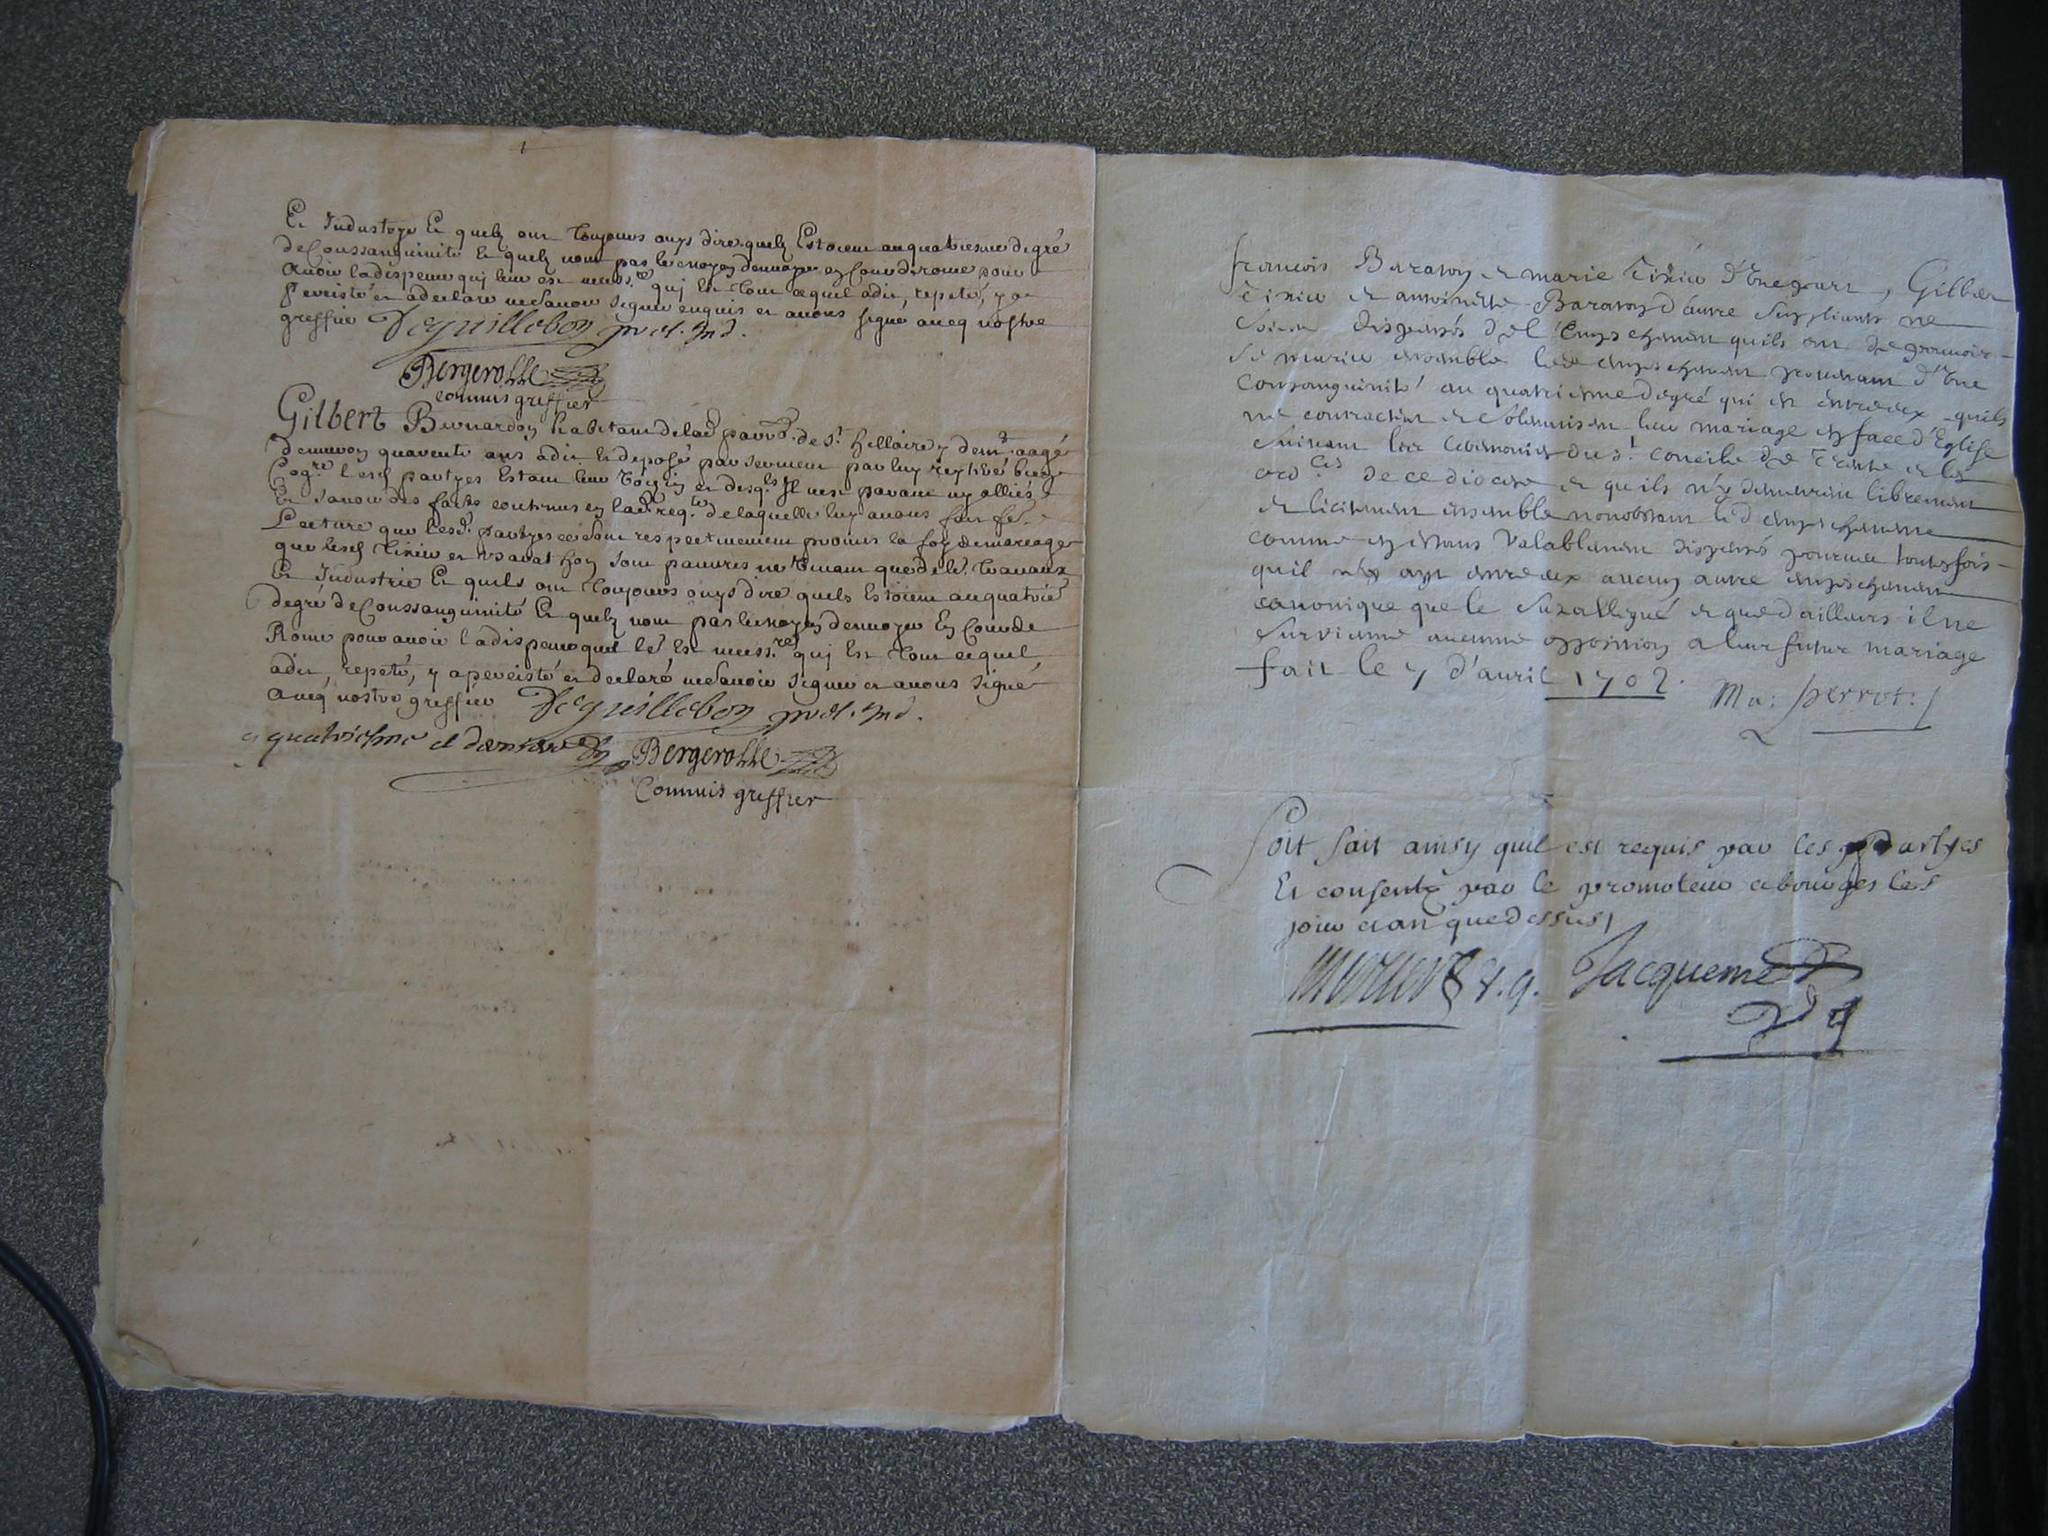 Et Industrye Et quelz ont toujours ouys dire quelz Estoient au quatriesme degré
de Consanguinité Et quelz nont pas le moyen denvoyer en Cour de rome pour
avoir la dispence qui leur est necess.re qui est tout ce quil a dit, repeté, y a
persisté et a declaré ne scavoir signer enquis et avons signé avecq nostre
greffier Deguillebon
Bergerolle
commis greffier
Gilbert Bernardon habitant de lad. parr. de St. hillaire y dem.t aagé
denviron quarente ans a dit et deposé par serment par luy
Cog.re lesd. partyes Estant leur voysin et desq.ls Il nest parant ny alliés
Et scavoir des faits contenus en lad. req.te de laquelle luy avons fait
Lecture que lesd. partyes ce sont respectivement promis la foy de mareage
que lesd. tixier et barathon sont pauvres ne vivant que de le.s travaux
Et Industrie Et quils ont toujours ouys dire quels Estoient au quatrie
degré de Consanguinité Et quelz nont pas le moyen denvoyer En Cour de
Rome pour avoir la dispence quil le Est necess.re qui Est tout ce quil
a dit, repeté, y a percisté et declaré ne scavoir signer et avons signé
avecq nostre greffier Deguillebon
quatriesme et dernier
Bergerolle
Commis greffier
francois Baraton et marie tixier d'une part, Gilbert
tixier et antoinette Baraton d'autre suppliants
soient dispensés de l'empeschement quils ont de pouvoir
se marier ensemble led empeschement provenant d'une
consanguinité au quatrieme degré qui est entre eux quils
ne contractent et solemnisent leur mariage en face d'Eglise
suivant les ceremonies du st. concile de trente et les
ord.ces de ce diocese et quils n'y demeurent librement
et licitement ensemble nonobstant led empeschement
comme en estans valablement dispensés pourveu toutesfois
quil n'y ayt entre eux aucun autre empeschement
canonique que le susallegué et que d'ailleurs il ne
survienne aucunne opposition a leur futur mariage
fait le 7 d'avril 1702. Ma: perrot
Soit fait ainsy quil est requis par les partyes
Et consenty par le promoteur a bourges les
jour et an que dessus
v.g. Jacquemet